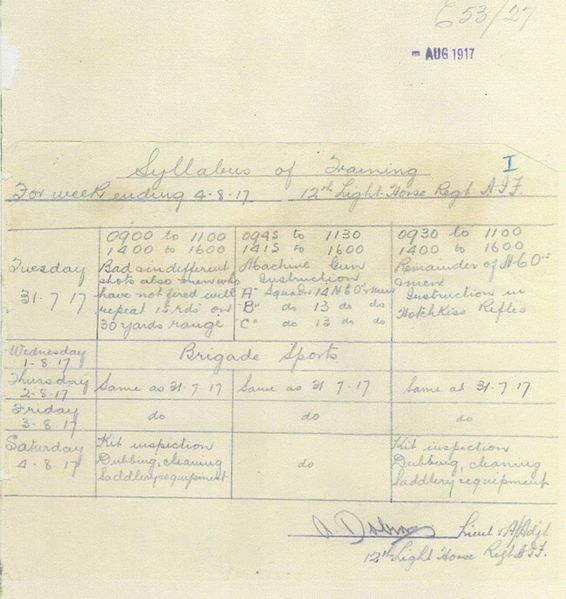 E53/27
- AUG 1917
I
Syllabus of Training
For week ending 4-8-17. 12th Light Horse Regt A.I.F.
0900 to 1100 0945 to 1130 0930 to 1100
1400 to 1600 1415 to 1600 1400 to 1600
Tuesday
31.7.17
Bad & indifferent
shots also men who
have not fired will
repeat 15 rds on
30 yards range
Machine Gun
Instruction
"A" Squadn 14 N.C.O's & men
"B" do 13 do do
"C" do 13 do do
Remainder of N.C.O's
& men
Instruction in
Hotchkiss Rifles
Wednesday
1-8-17
Brigade Sports
Thursday
2-8-17
Same as 31.7.17 Same as 31.7.17 Same as 31.7.17
Friday
3-8-17
do do do
Saturday
4.8.17
Kit inspection
Dubbing, cleaning
Saddlery & equipment
do
Kit inspection
Dubbing, cleaning
Saddlery & equipment
Lieut & A/Adjt
12th Light Horse Regt A.I.F.